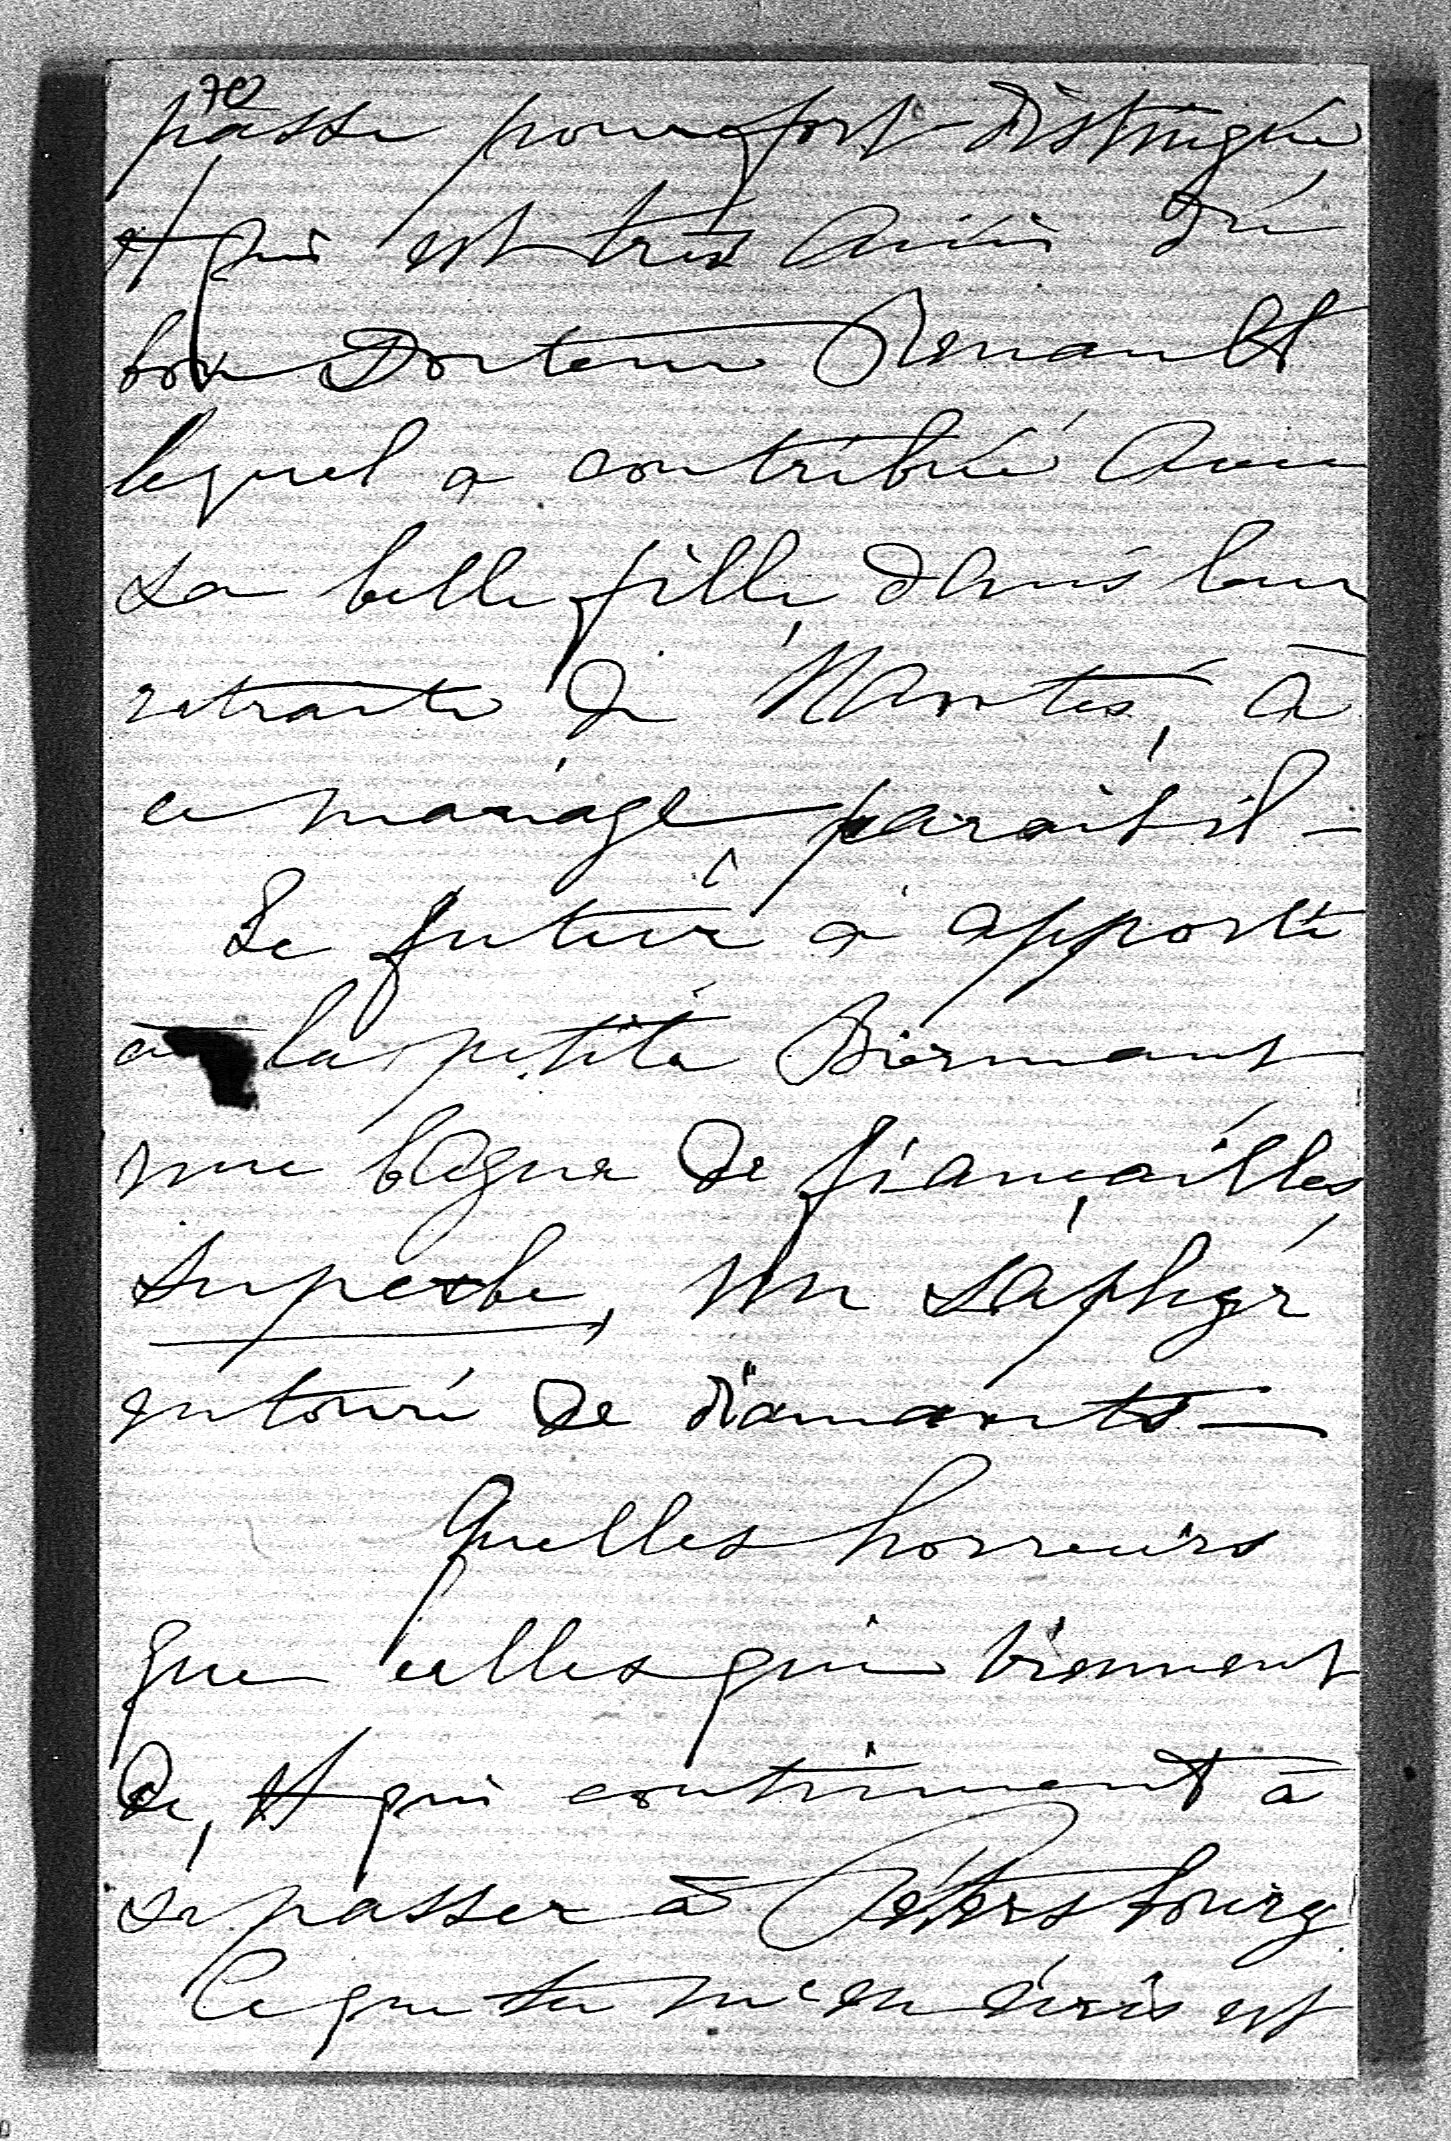 70
passe pour fort distingué
et qui est très amis du
bon Docteur Renault
lequel a contribué avec
sa belle fille, dans leur
retraite de Nantes, à
ce mariage paraît-il –
Le futur a apporté
à la petite
une bague de fiançailles
superbe, un saphyr
entouré de diamants –
Quelles horreurs
que celles qui viennent
de, et qui continuent à
se passer à Pétersbourg
Ce que tu m'en écris est